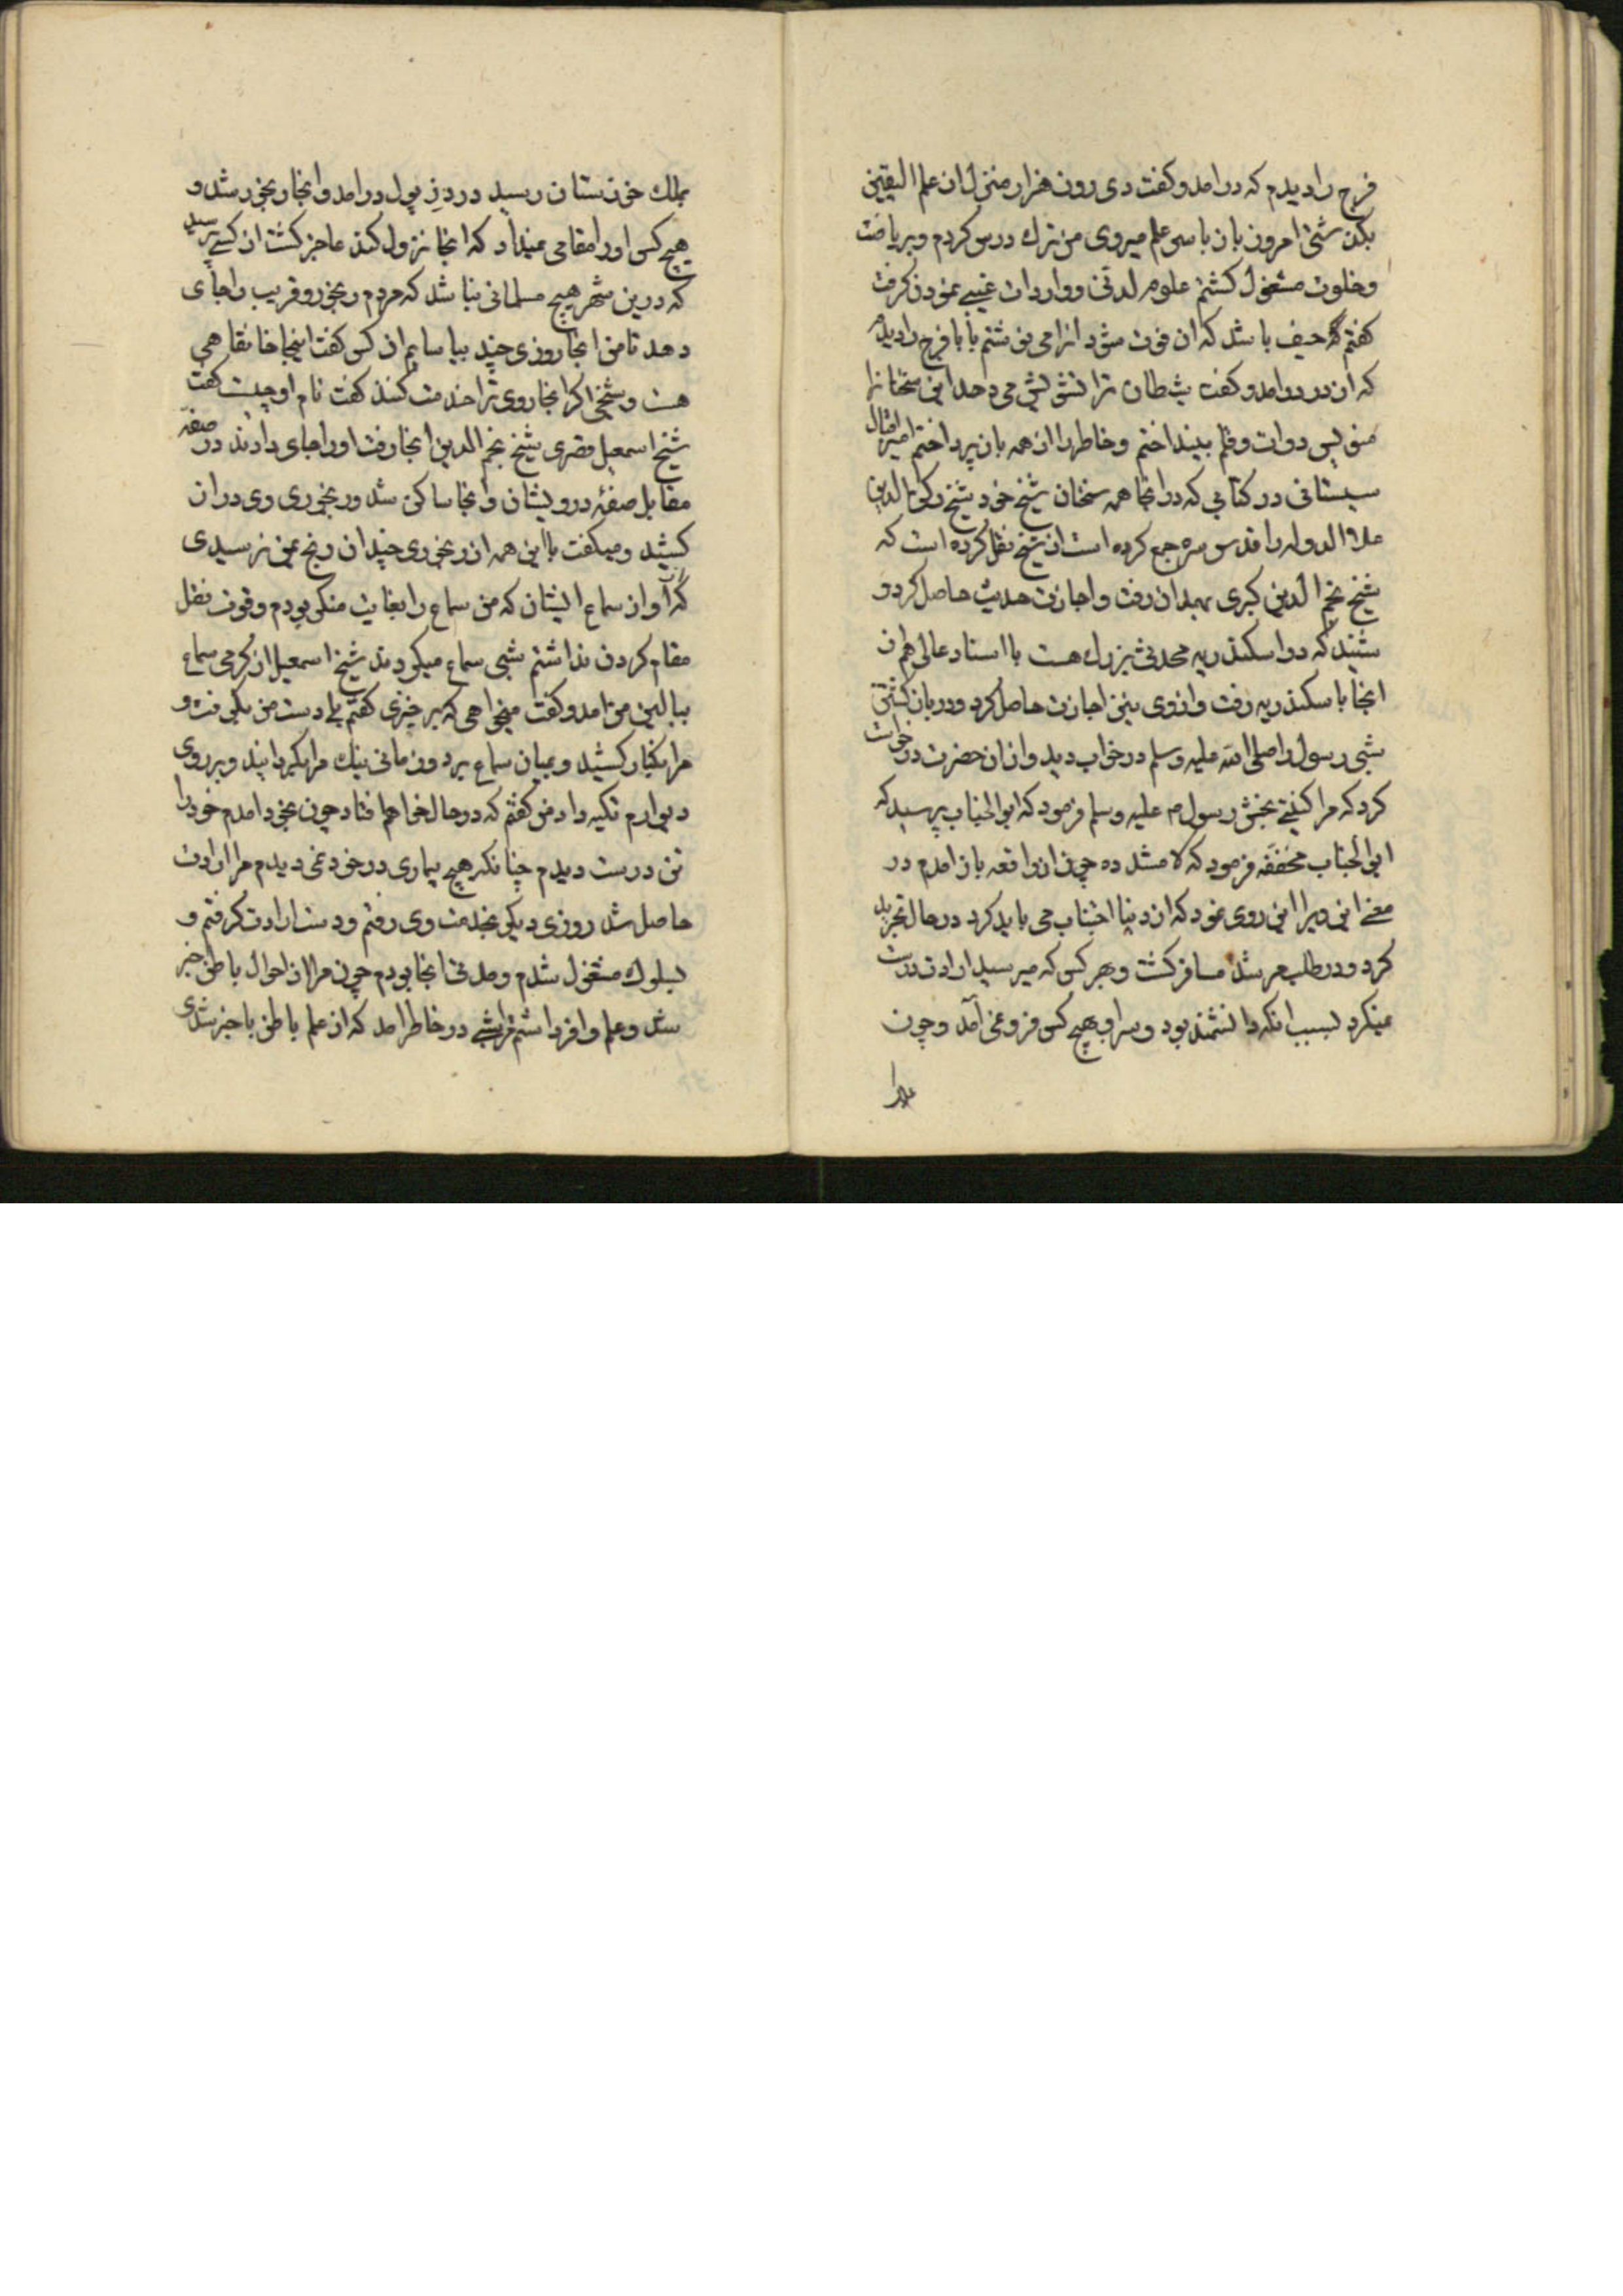 فرج را دیدم که درامد و کفت دی روز هزار منزل از علم الیقین
بکذشتی امروز باز با سر علم میروی من ترك درس کردم و بریاضت
و خلوت مشغول کشتم علوم لدنی و واردات غیبی نمودن کرفت
کفتم که حیف باشد که ان فوت شود انرا می نوشتم بابا فرج را دیدم
که از در درامد و کفت شیطان ترا تشویش می دهد این سخنان را
منویس دوات و قلم بینداختم و خاطر را از همه بان پرداختم امیر اقبال
سیستانی در کتابی که در انجا همه سخنان شیخ خود شیخ رکن الدین
علاء الدوله را قدس سره جمع کرده است از شیخ نقل کرده است که
شیخ نجم الدین کبری بهمدان رفت و اجازت حدیث حاصل کرد و
شنید که در اسکندریه محدثی بزرك هست با اسناد عالی هم از
انجا باسکندریه رفت و از وی نیز اجازت حاصل کرد و در باز کشتن
شبی رسول را صلی الله علیه وسلم در خواب دید و از ان حضرت درخواست
کرد که مرا کنیتی بخش رسول م علیه وسلم فرمود که ابو الجناب پرسید که
ابو الجناب مخففه فرمود که لا مشدده چون از واقعه باز امدم در
معنی این ویرا این روی نمود که از دنیا اجتناب می باید کرد در حال تجرید
کرد و در طلب مرشد مسافر کشت و بهر کس که میرسید ارادت درست
نمیکرد بسبب انکه دانشمند بود و سر او بهیچ کس فرو نمی آمد و چون
بملك خوزستان رسید در دزپول درامد و انجا رنجور شد و
هیچ کس او را مقامی نمیداد که انجا نزول کند عاجز کشت از کسی پرسید
که درین شهر هیچ مسلمانی نباشد که مردم رنجور و غریب را جای
دهد تا من انجا روزی چند بیاسایم ان کس کفت اینجا خانقاهی
هست و شیخی اکر انجا روی ترا خدمت کنند کفت نام او چیست کفت
شیخ اسمعیل قصری شیخ نجم الدین انجا رفت او را جای دادند در صفه
مقابل صفه درویشان و انجا ساکن شد و رنجوری وی دراز
کشید و میکفت با این همه از رنجوری چندان رنج بمن نرسیدی
که از آواز سماع ایشان که من سماع را بغایت منکر بودم و قوت نقل
مقام کردن نداشتم شبی سماع میکردند شیخ اسمعیل از کرمی سماع
ببالین من امد و کفت میخواهی که برخیزی کفتم بلی دست من بکرفت و
مرا بکنار کشید و بمیان سماع برد و زمانی نیك مرا بکردانید و بر روی
دیوارم تکیه داد من کفتم که در حال خواهم افتاد چون بخود امدم خود را
تن درست دیدم چنانکه هیچ بیماری در خود نمی دیدم مرا ارادت
حاصل شد روزی دیکر بخدمت وی رفتم و دست ارادت کرفتم و
بسلوك مشغول شدم و مدتی انجا بودم چون مرا از احوال باطن خبر
شد و علم وافر داشتم شبی در خاطر امد که از علم باطن باخبر شدی